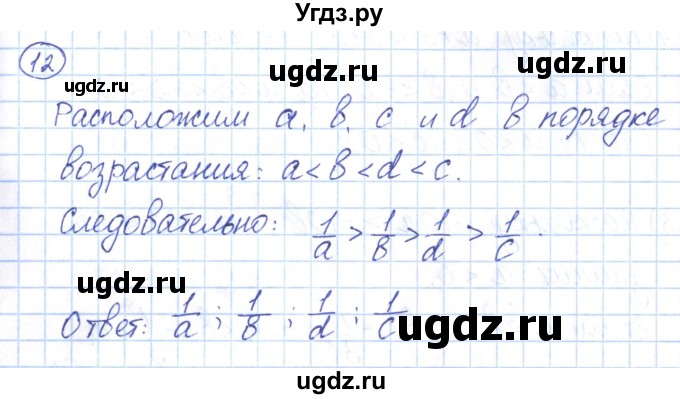 Угдз.ру
12
ugdz.ru ugdz.ru
Расположим a, b, c и d в порядке
возрастания: a < b < d < c.
ugdz.ru
Следовательно: 1/a > 1/b > 1/d > 1/c.
ugdz.ru
Ответ: 1/a ; 1/b ; 1/d ; 1/c
ugdz.ru
ugdz.ru